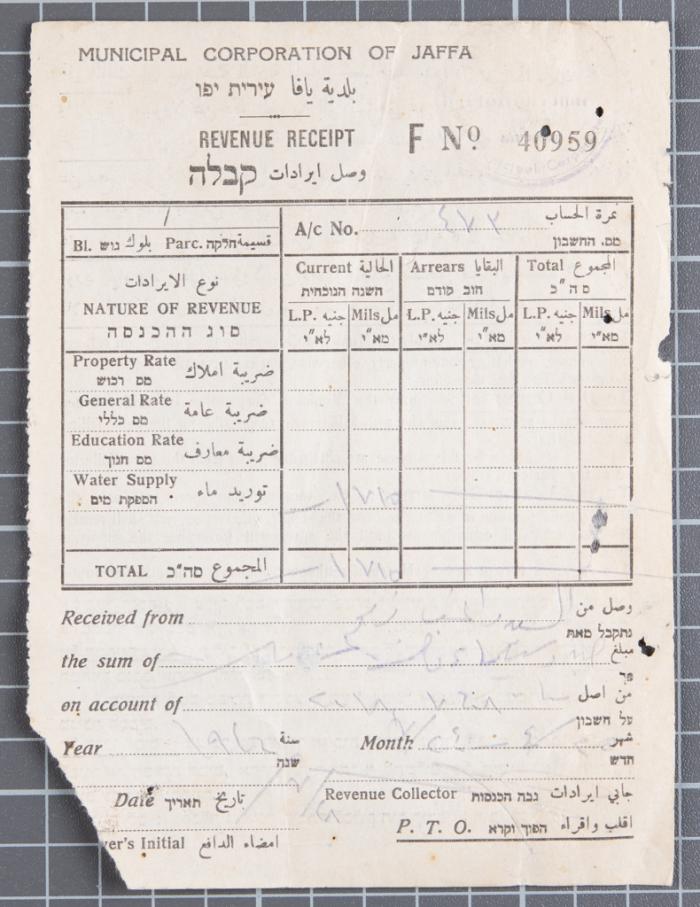 MUNICIPAL CORPORATION OF JAFFA
بلدية يافا עירית יפו
REVENUE RECEIPT F Nº 40959
وصل ايرادات קבלה
Bl. بلوك גוש Parc. قسيمة חלקה
A/c No. ٤٧٢ نمرة الحساب
מס. החשבון
نوع الايرادات
NATURE OF REVENUE
סוג ההכנסה
Current الحالية Arrears البقايا Total المجموع
השנה הנוכחית חוב קודם סה"כ
L.P. جنيه Mils مل L.P. جنيه Mils مل L.P. جنيه Mils مل
לא"י מא"י לא"י מא"י לא"י מא"י
Property Rate ضريبة املاك
מס רכוש
General Rate ضريبة عامة
מס כללי
Education Rate ضريبة معارف
מס חנוך
Water Supply توريد ماء
הספקת מים
TOTAL סה"כ المجموع
Received from وصل من
נתקבל מאת
the sum of مبلغ
סך
on account of من اصل
על חשבון
Year سنة Month شهر
שנה חדש
Date תאריך تاريخ Revenue Collector גבה הכנסות جابي ايرادات
yer's Initial امضاء الدافع P. T. O. הפוך וקרא اقلب واقراء